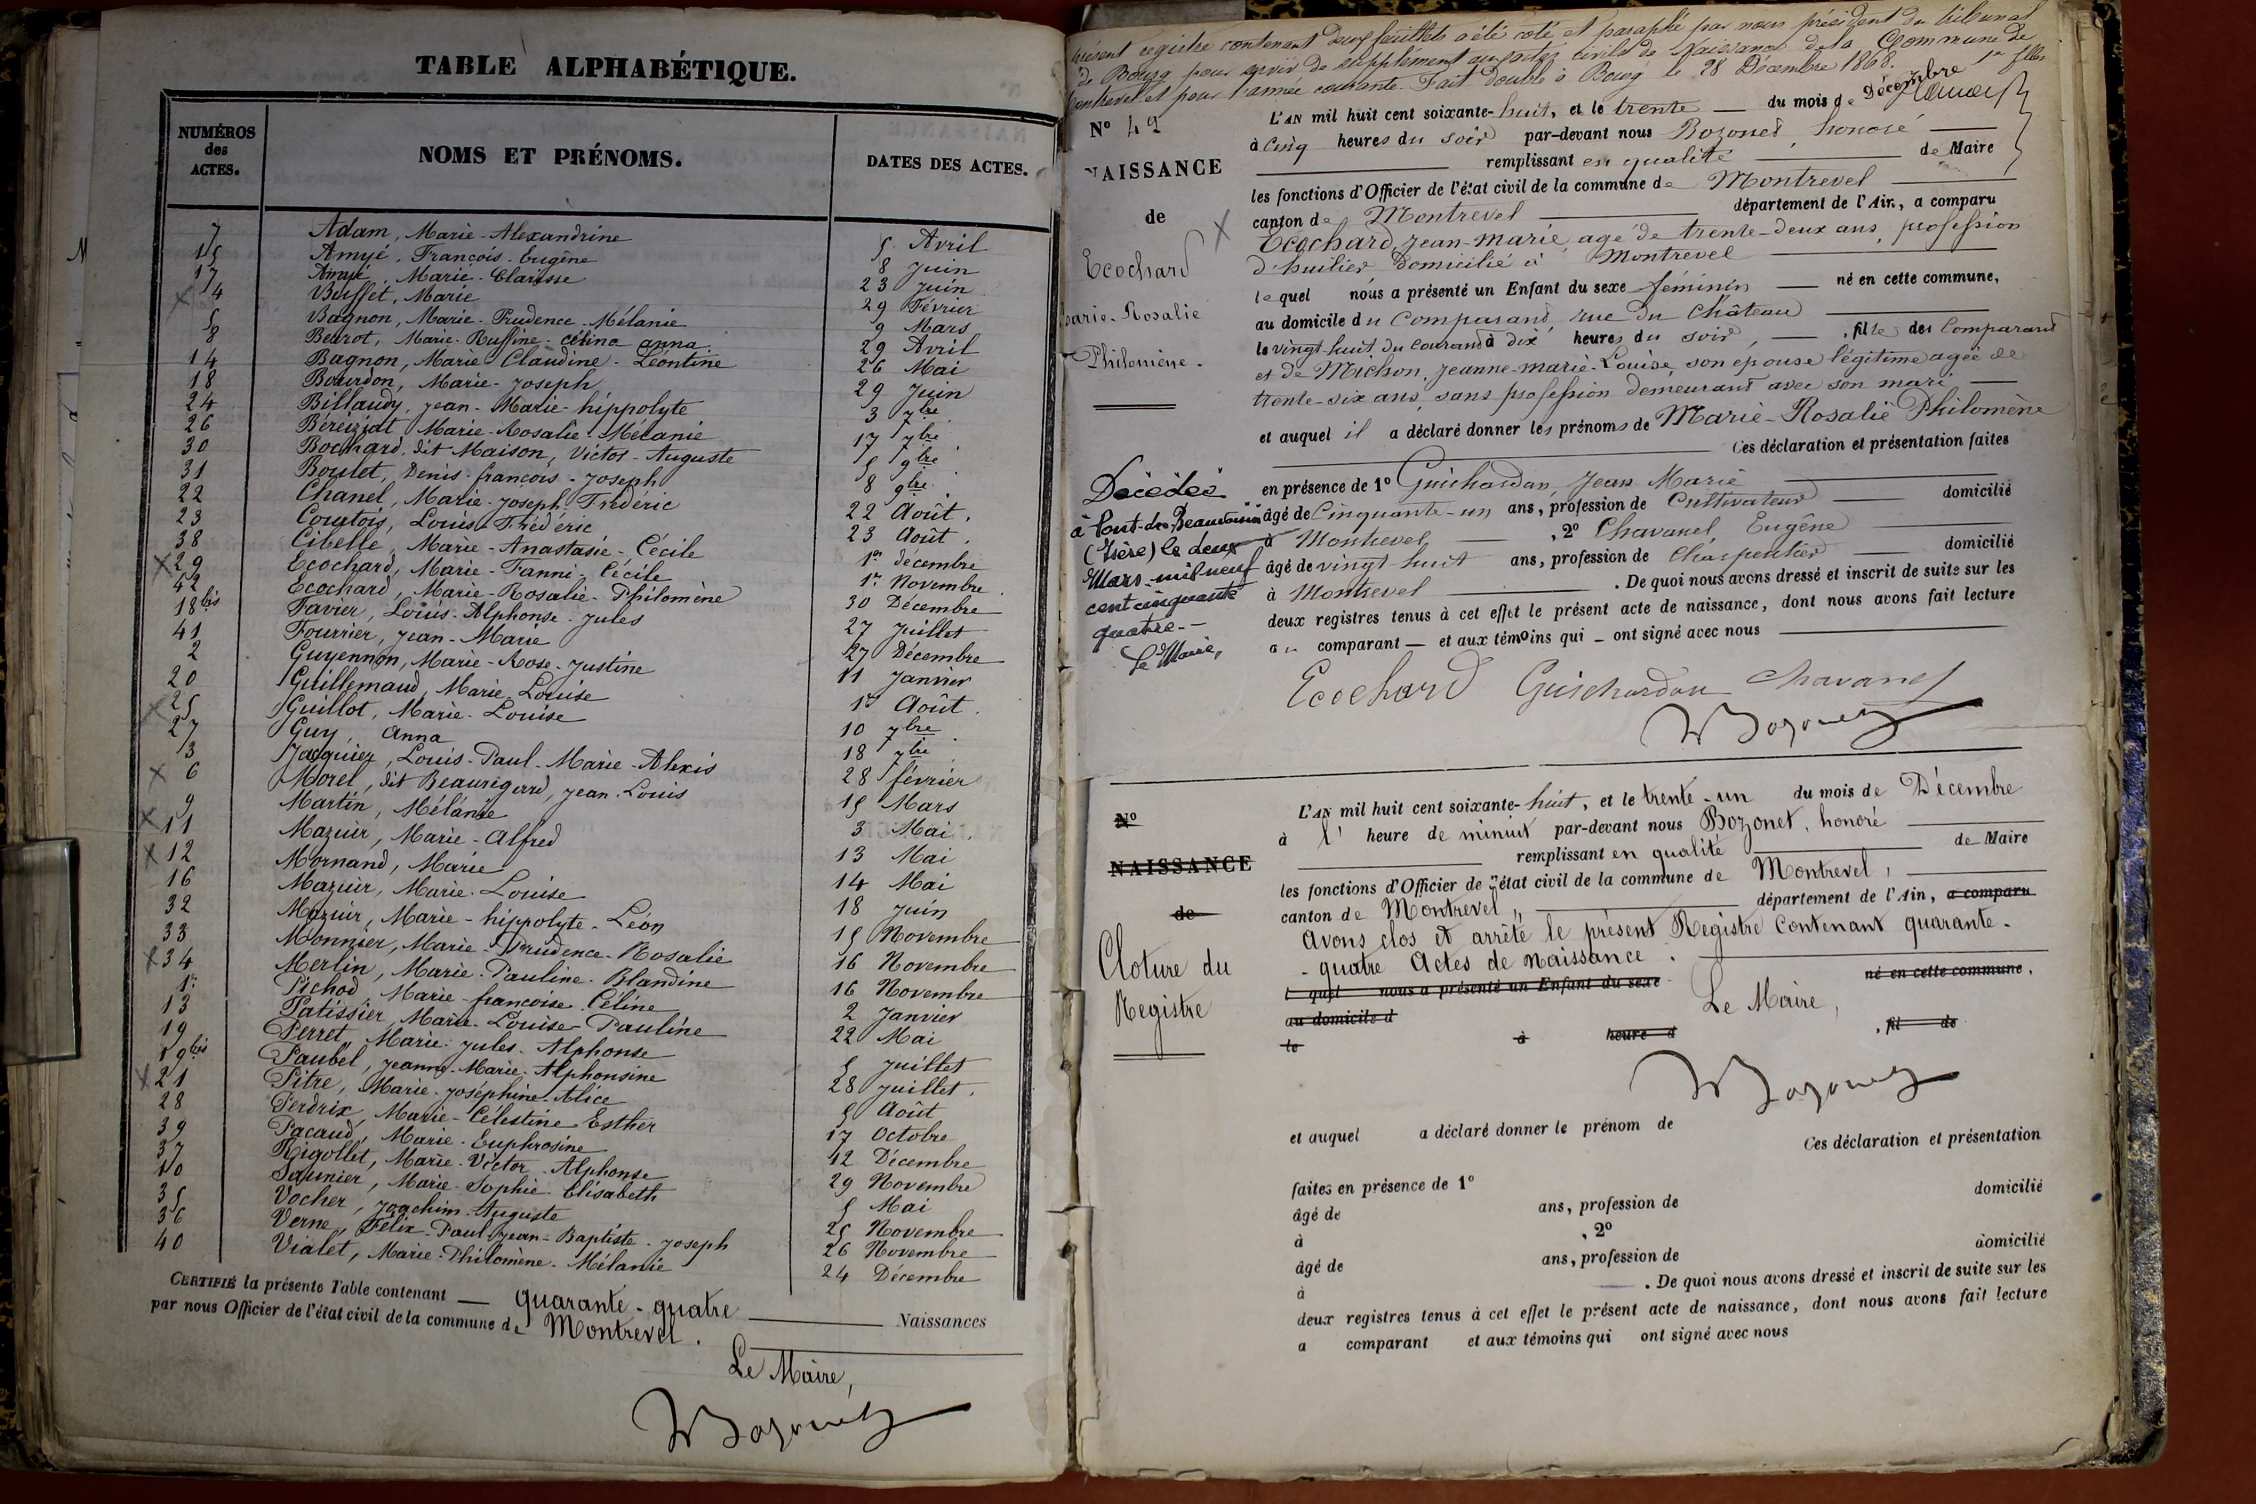 TABLE ALPHABÉTIQUE.
NUMÉROS des ACTES. NOMS ET PRÉNOMS. DATES DES ACTES.
7 Adam, Marie-Alexandrine 5 Avril
15 Amyé, François-Eugène 8 Juin
17 Amyé, Marie-Clarisse 23 Juin
4 Buffet, Marie 29 Février
5 Bagnon, Marie-Prudence-Mélanie 9 Mars
8 Beurot, Marie-Ruffine-Célina anna. 29 Avril
14 Bagnon, Marie Claudine-Léontine 26 Mai
18 Bourdon, Marie-Joseph 29 Juin
24 Billaudy, Jean-Marie-hippolyte 3 7bre
26 Béréiziat Marie-Rosalie-Mélanie 17 7bre
30 Bochard dit Maison, Victor-Auguste 5 9bre
31 Boulet, Denis-françois-Joseph 8 9bre
22 Chanel, Marie-Joseph-Frédéric 22 Août.
23 Courtois, Louis-Frédéric 23 Août.
38 Cibelle, Marie-Anastasie-Cécile 1er décembre
29 Ecochard, Marie-Fanni-Cécile 1er Novembre
42 Ecochard, Marie-Rosalie-Philomène 30 Décembre
18 bis Favier, Louis-Alphonse-Jules 27 Juillet
41 Fourrier, Jean-Marie 27 Décembre
2 Guyennon, Marie-Rose-Justine 11 Janvier
20 Guillemaud, Marie-Louise 1er Août.
25 Guillot, Marie-Louise 10 7bre
27 Guy, Anna 18 7bre
3 Jacquier, Louis-Paul-Marie-Alexis 28 février
6 Morel, dit Beauregard, Jean-Louis 15 Mars
9 Martin, Mélanie 3 Mai.
11 Mazuir, Marie-Alfred 13 Mai
12 Mornand, Marie 14 Mai
16 Mazuir, Marie-Louise 18 Juin
32 Mazuir, Marie-hippolyte-Léon 15 Novembre
33 Monnier, Marie-Prudence-Rosalie 16 Novembre
34 Merlin, Marie-Pauline-Blandine 16 Novembre
1er Pichod Marie-françoise-Céline 2 Janvier
13 Patissier, Marie-Louise-Pauline 22 Mai
19 Perret, Marie-Jules-Alphonse 5 Juillet
19 bis Paubel, Jeanne-Marie-Alphonsine 28 Juillet.
21 Pitre, Marie-Joséphine-Alice 5 Août
28 Perdrix, Marie-Célestine Esther 17 Octobre
39 Pacaud, Marie-Euphrosine 12 Décembre
37 Rigollet, Marie-Victor-Alphonse 29 Novembre
10 Saunier, Marie-Sophie-Elisabeth 5 Mai
35 Vocher, Joachim-Auguste 25 Novembre
36 Verne, Félix-Paul-Jean-Baptiste-Joseph 26 Novembre
40 Vialet, Marie-Philomène-Mélanie 24 Décembre
CERTIFIÉ la présente Table contenant quarante-quatre Naissances
par nous Officier de l'état civil de la commune de Montrevel.
Le Maire,
Bozonet
présent registre contenant deux feuillets a été coté et paraphé par nous président du tribunal
de Bourg pour servir de supplément aux actes civils de Naissance de la Commune de
Montrevel et pour l'année courante. Fait double à Bourg le 28 Décembre 1868.
N° 42
NAISSANCE
de
Ecochard
Marie-Rosalie
Philomène.
L'AN mil huit cent soixante-huit, et le trente du mois de Décembre
à cinq heures du soir par-devant nous Bozonet, honoré
remplissant en qualité de Maire
les fonctions d'Officier de l'état civil de la commune de Montrevel
canton de Montrevel département de l'Ain, a comparu
Ecochard, Jean-Marie, agé de trente-deux ans, profession
d'huilier, domicilié à Montrevel
lequel nous a présenté un Enfant du sexe féminin né en cette commune,
au domicile du Comparant, rue du Château
le vingt-huit du courant à dix heures du soir, fille des Comparant
et de Michon, Jeanne-Marie-Louise, son épouse légitime agée de
trente-six ans, sans profession demeurant avec son mari
et auquel il a déclaré donner les prénoms de Marie-Rosalie Philomène
Ces déclaration et présentation faites
en présence de 1° Guichardan, Jean Marie
âgé de Cinquante-un ans, profession de Cultivateur domicilié
à Montrevel, 2° Chavanel, Eugène
âgé de vingt-huit ans, profession de Charpentier domicilié
à Montrevel. De quoi nous avons dressé et inscrit de suite sur les
deux registres tenus à cet effet le présent acte de naissance, dont nous avons fait lecture
au comparant et aux témoins qui ont signé avec nous
Ecochard Guichardan Chavanel
Bozonet
Décédée
à Pont-de-Beauvoisin
(Isère) le deux
Mars mil neuf
cent cinquante
quatre.-
Le Maire,
N°
NAISSANCE
de
Cloture du
Registre
L'AN mil huit cent soixante-huit, et le trente-un du mois de Décembre
à l' heure de minuit par-devant nous Bozonet, honoré
remplissant en qualité de Maire
les fonctions d'Officier de l'état civil de la commune de Montrevel,
canton de Montrevel, département de l'Ain, a comparu
Avons clos et arrêté le présent Registre Contenant quarante-
-quatre Actes de naissance.
l quel nous a présenté un Enfant du sexe né en cette commune,
Le Maire,
au domicile d
le à heure d, fil de
Bozonet
et auquel a déclaré donner le prénom de
Ces déclaration et présentation
faites en présence de 1°
âgé de ans, profession de domicilié
à, 2°
âgé de ans, profession de domicilié
à. De quoi nous avons dressé et inscrit de suite sur les
deux registres tenus à cet effet le présent acte de naissance, dont nous avons fait lecture
a comparant et aux témoins qui ont signé avec nous